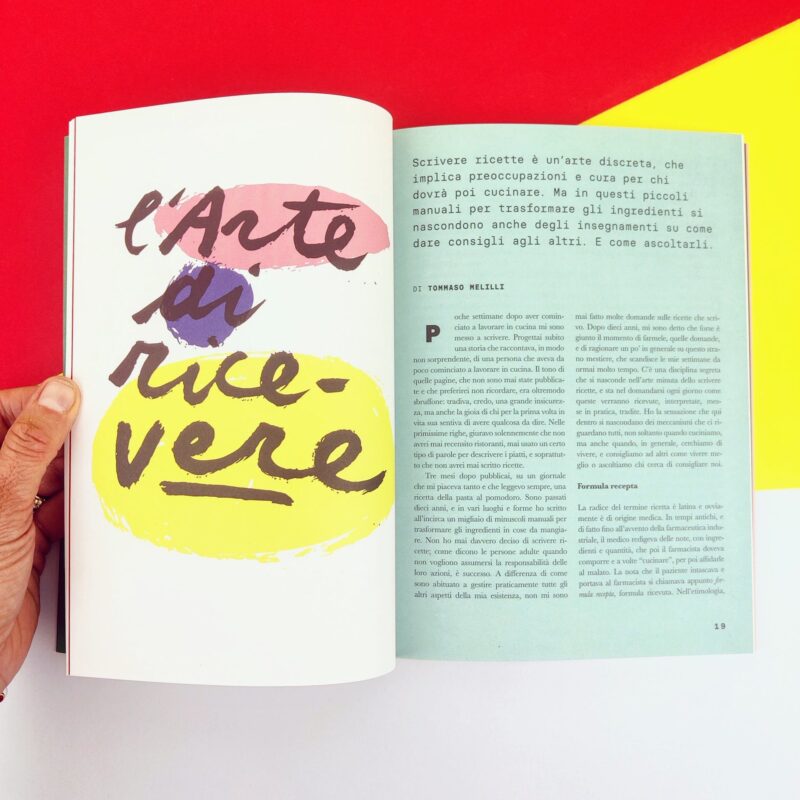 l'Arte
di
rice-
vere
Scrivere ricette è un'arte discreta, che
implica preoccupazioni e cura per chi
dovrà poi cucinare. Ma in questi piccoli
manuali per trasformare gli ingredienti si
nascondono anche degli insegnamenti su come
dare consigli agli altri. E come ascoltarli.
DI TOMMASO MELILLI
Poche settimane dopo aver comin-
ciato a lavorare in cucina mi sono
messo a scrivere. Progettai subito
una storia che raccontava, in modo
non sorprendente, di una persona che aveva da
poco cominciato a lavorare in cucina. Il tono di
quelle pagine, che non sono mai state pubblica-
te e che preferirei non ricordare, era oltremodo
sbruffone: tradiva, credo, una grande insicurez-
za, ma anche la gioia di chi per la prima volta in
vita sua sentiva di avere qualcosa da dire. Nelle
primissime righe, giuravo solennemente che non
avrei mai recensito ristoranti, mai usato un certo
tipo di parole per descrivere i piatti, e soprattut-
to che non avrei mai scritto ricette.
Tre mesi dopo pubblicai, su un giornale
che mi piaceva tanto e che leggevo sempre, una
ricetta della pasta al pomodoro. Sono passati
dieci anni, e in vari luoghi e forme ho scritto
all'incirca un migliaio di minuscoli manuali per
trasformare gli ingredienti in cose da mangia-
re. Non ho mai davvero deciso di scrivere ri-
cette; come dicono le persone adulte quando
non vogliono assumersi la responsabilità delle
loro azioni, è successo. A differenza di come
sono abituato a gestire praticamente tutte gli
altri aspetti della mia esistenza, non mi sono
mai fatto molte domande sulle ricette che scri-
vo. Dopo dieci anni, mi sono detto che forse è
giunto il momento di farmele, quelle domande,
e di ragionare un po' in generale su questo stra-
no mestiere, che scandisce le mie settimane da
ormai molto tempo. C'è una disciplina segreta
che si nasconde nell'arte minuta dello scrivere
ricette, e sta nel domandarsi ogni giorno come
queste verranno ricevute, interpretate, mes-
se in pratica, tradite. Ho la sensazione che qui
dentro si nascondano dei meccanismi che ci ri-
guardano tutti, non soltanto quando cuciniamo,
ma anche quando, in generale, cerchiamo di
vivere, e consigliamo ad altri come vivere me-
glio o ascoltiamo chi cerca di consigliare noi.
Formula recepta
La radice del termine ricetta è latina e ovvia-
mente è di origine medica. In tempi antichi, e
di fatto fino all'avvento della farmaceutica indu-
striale, il medico redigeva delle note, con ingre-
dienti e quantità, che poi il farmacista doveva
comporre e a volte "cucinare", per poi affidarle
al malato. La nota che il paziente intascava e
portava al farmacista si chiamava appunto for-
mula recepta, formula ricevuta. Nell'etimologia,
19